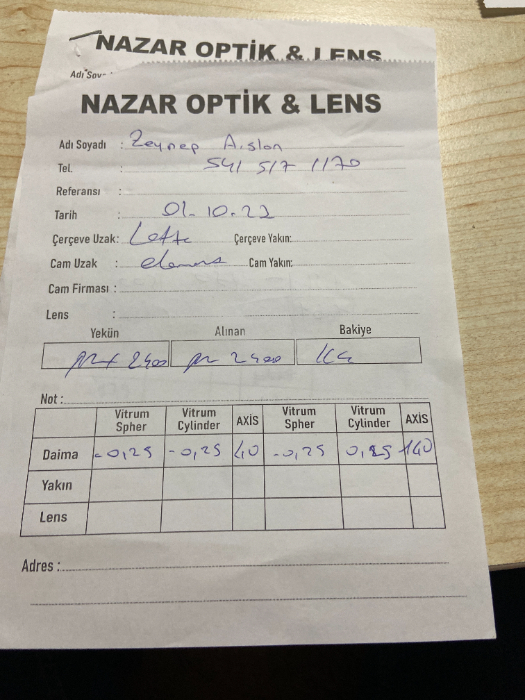 NAZAR OPTİK & LENS
Adı Soy
NAZAR OPTİK & LENS
Adı Soyadı : Zeynep Arslan
Tel. 541 517 1170
Referansı :
Tarih : 01.10.22
Çerçeve Uzak: Çerçeve Yakın:
Cam Uzak : Cam Yakın:
Cam Firması :
Lens :
Yekün Alınan Bakiye
2400 2400
Not :
Vitrum Spher Vitrum Cylinder AXİS Vitrum Spher Vitrum Cylinder AXİS
Daima -0,25 -0,25 40 -0,25 0,25 140
Yakın
Lens
Adres :